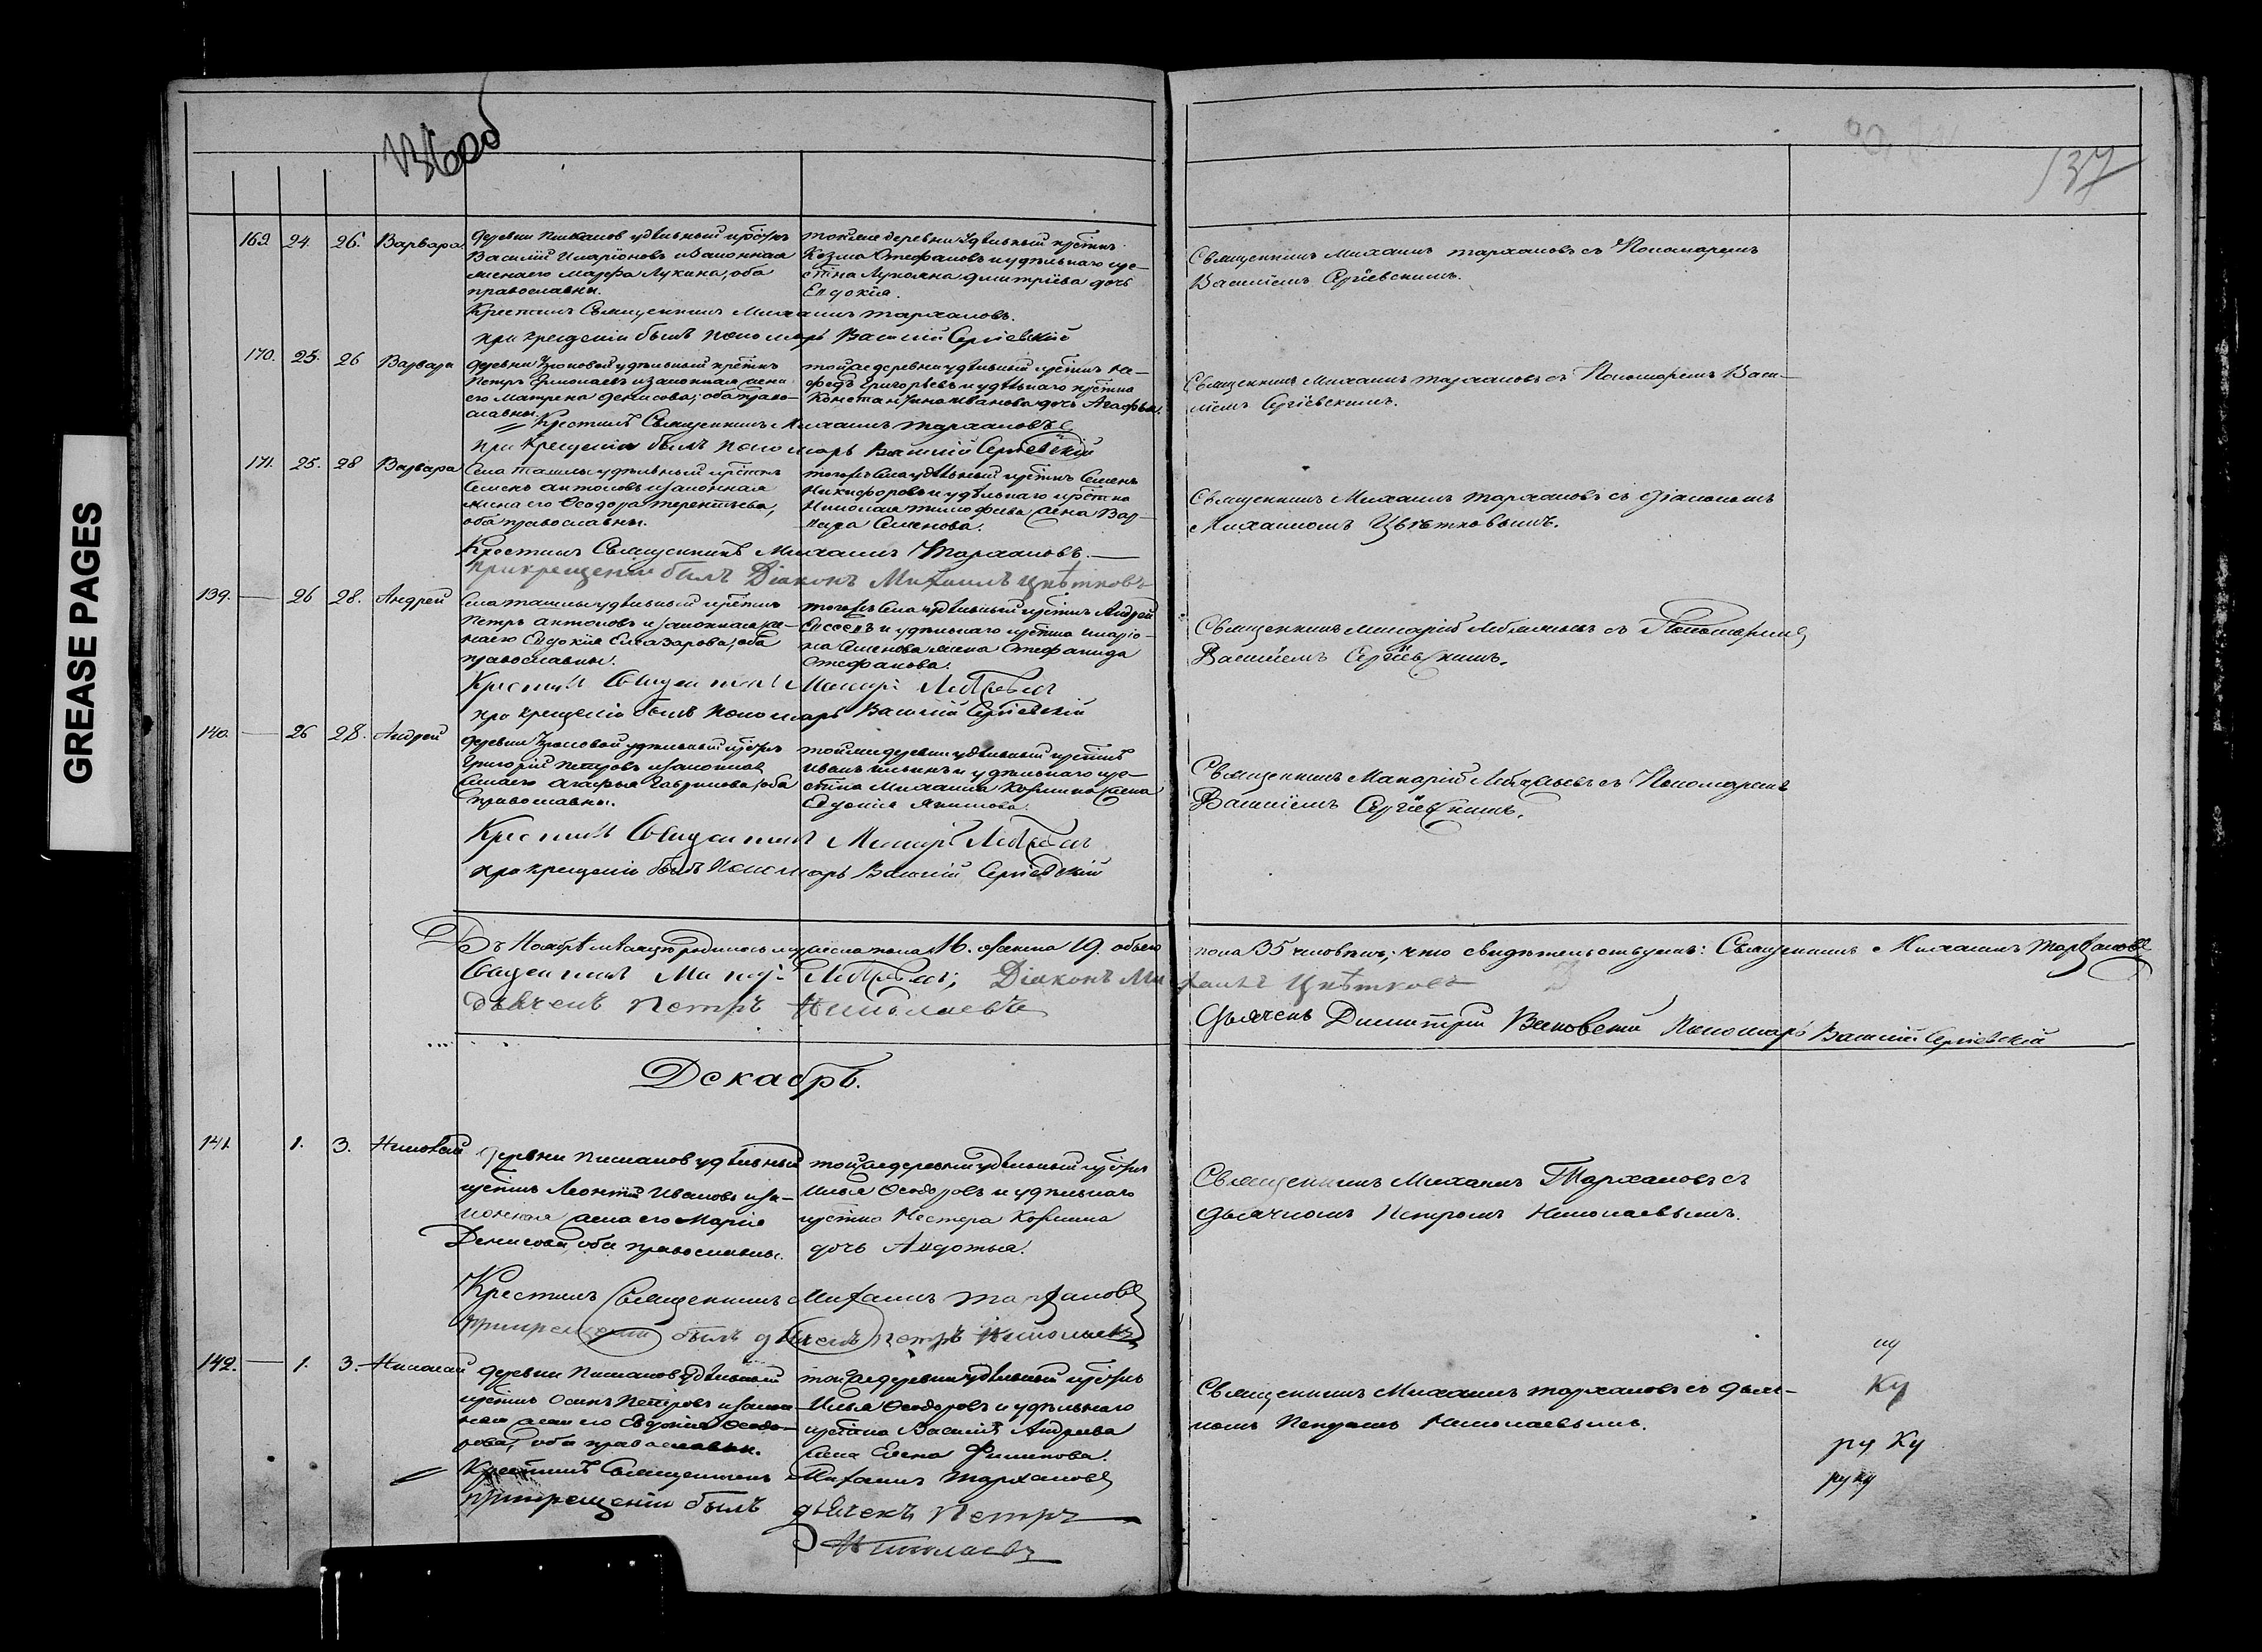 GREASE PAGES
136 об
137
169. 24. 26. Варвара
Деревни удѣльный
Василій Иларіоновъ и законная
жена его Марфа Лукина, оба
православны.
тойже деревни удѣльный крестин
Козма Стефановъ и удѣльнаго кре-
стна Лукояна Димитріева дочь
Евдокія.
Крестилъ Священникъ Михаилъ Тархановъ.
при крещеніи былъ Пономарь Василій Сергіевскій
Священникъ Михаилъ Тархановъ съ Пономаремъ
Василіемъ Сергіевскимъ.
170. 25. 26 Варвара
Деревни удѣльный крестнъ
Петръ и законная жена
его Матрена Денисова; оба право-
славны.
тойже деревни удѣльный крестнъ
Григорьевъ и удѣльнаго крестна
Константина Иванова дочь Агафья.
Крестилъ Священникъ Михаилъ Тархановъ
При Крещеніи былъ Пономарь Василій Сергіевскій
Священникъ Михаилъ Тархановъ съ Пономаремъ Васи-
ліемъ Сергіевскимъ.
171. 25. 28 Варвара
Села Ташлы удѣльный крестнъ
Семенъ Антоновъ и законная
жена его Ѳеодора Терентьева,
оба православны.
тогожъ Села удѣльный крестнъ Семенъ
Никифоровъ и удѣльнаго крестна
Николая Тимофеева жена Вар-
вара Семенова.
Крестилъ Священникъ Михаилъ Тархановъ.
При крещеніи былъ Діаконъ Михаилъ Цвѣтковъ
Священникъ Михаилъ Тархановъ съ Діакономъ
Михаиломъ Цвѣтковымъ.
139. — 26 28. Андрей
Села Ташлы удѣльный крестнъ
Петръ Антоновъ и законная же-
на его Евдокія Елиазарова, оба
православны.
тогожъ Села удѣльный крестнъ Андрей
и удѣльнаго крестна Иларіо-
на Семенова жена Стефанида
Стефанова.
Крестилъ Священникъ
при крещеніи былъ Пономарь Василій Сергіевскій
Священникъ Макарій съ Пономаремъ
Василіемъ Сергіевскимъ.
140. — 26 28. Андрей
Деревни удѣльный
Григорій Петровъ и законная
жена его Агафья Гаврилова, оба
православны.
тойже деревни удѣльный крестнъ
Иванъ Ильинъ и удѣльнаго кре-
стна Михаила Козмина жена
Евдокія Якимова.
Крестилъ Священникъ
при крещеніи былъ Пономарь Василій Сергіевскій
Священникъ Макарій съ Пономаремъ
Василіемъ Сергіевскимъ.
Въ Ноябрѣ мѣсяцѣ родилось мужеска пола 16. женска 19. обоего
пола 35 человѣкъ; что свидѣтельствуемъ: Священникъ Михаилъ Тархановъ
Священникъ Діаконъ Михаилъ Цвѣтковъ
дьячекъ Петръ Николаевъ
Дьячекъ Димитрій Пономарь Василій Сергіевскій
Декабрь.
141. 1. 3. Николай
Деревни удѣльный
крестнъ Леонтій Ивановъ и за-
конная жена его Марія
Денисова, оба православны.
тойже деревни удѣльный
Илья Ѳеодоровъ и удѣльнаго
крестна Нестера Козмина
дочь Авдотья.
Крестилъ Священникъ Михаилъ Тархановъ
При крещеніи былъ дьячекъ Петръ Николаевъ
Священникъ Михаилъ Тархановъ съ
Дьячкомъ Петромъ Николаевымъ.
142. — 1. 3. Николай
Деревни удѣльный
крестнъ Осипъ Петровъ и закон-
ная жена его Евдокія Ѳеодо-
рова, оба православны.
тойже деревни удѣльный
Илья Ѳеодоровъ и удѣльнаго
крестна Василія Андреева
жена Елена Филипова.
Крестилъ Священникъ Михаилъ Тархановъ
при крещеніи былъ дьячекъ Петръ
Николаевъ
Священникъ Михаилъ Тархановъ съ Дьяч-
комъ Петромъ Николаевымъ.
Ку
ру Ку
руку